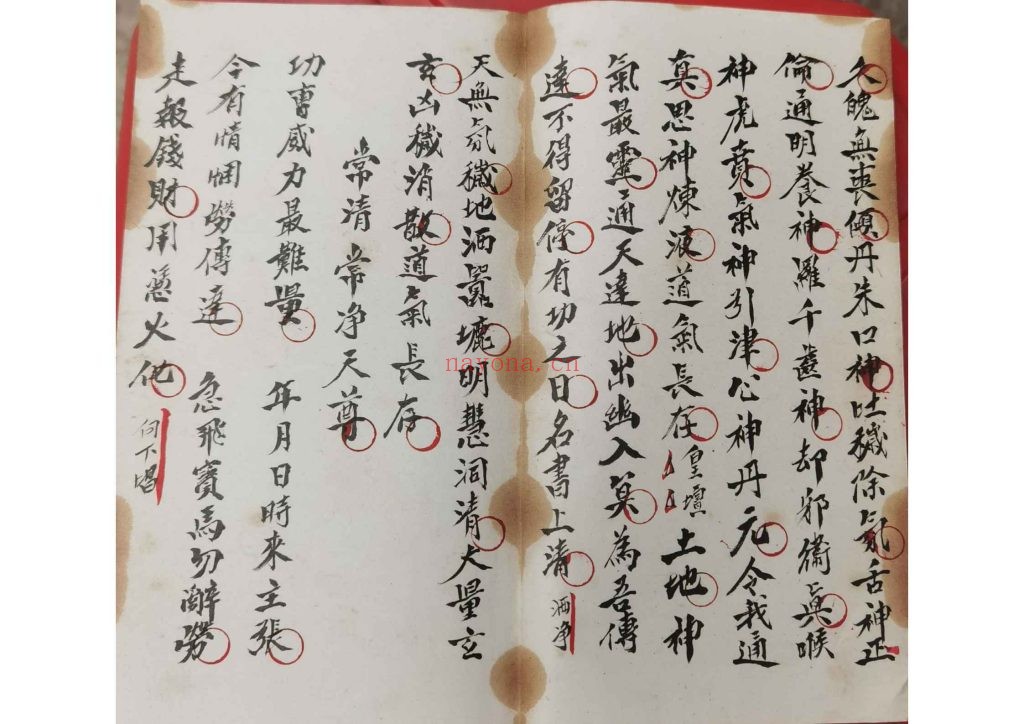 久魄無喪傾丹朱口神吐穢除氛舌神正
倫通明養神羅千齒神却邪衛真喉
神虎賁氣神引津心神丹元令我通
真思神煉液道氣長存皇壇土地神
氣最靈通天達地出幽入冥為吾傳
達不得留停有功之日名書上清 洒净
天無氛穢地洒囂塵明慧洞清大量玄
玄凶穢消散道氣長存
常清常净天尊
功曹威力最難量 年月日時來主張
今有情悃勞傳達 急飛寶馬勿辭勞
走報錢財用憑火化 向下唱
nayona.cn